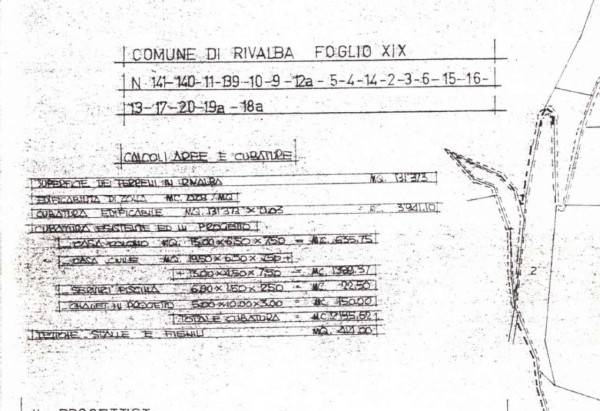 COMUNE DI RIVALBA FOGLIO XIX
N. 141-140-11-139-10-9-12a-5-4-14-2-3-6-15-16-
13-17-20-19a-18a
CALCOLI AREE E CUBATURE
SUPERFICIE DEI TERRENI IN RIVALBA MQ. 131373
EDIFICABILITA DI ZONA MC. 0,03 / MQ
CUBATURA EDIFICABILE MQ. 131373 x 0,03 = MC. 3941,10
CUBATURA ESISTENTE ED IN PROGETTO
CASA COLONO MQ. 15,00 x 6,50 x 7,50 = MC.
CASA CIVILE MQ 19,50 x 6,50 x
+ 15,00 x 4,50 x 7,50 = MC.
SERVIZI PISCINA 6,00 x 1,50 x 2,50 = MC. 22,50
CHALET IN PROGETTO 5,00 x 10,00 x 3,00 = MC. 150,00
TOTALE CUBATURA = MC.
TETTOIE STALLE E FIENILI MQ.
2